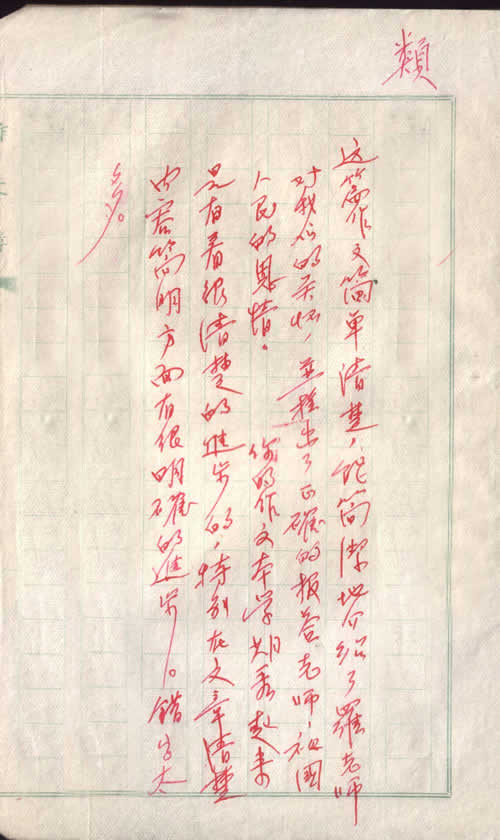 類
这篇作文简单清楚，能简潔地介绍了羅老师
对我们的关怀，並提出了正確的报答老师、祖国
人民的恩情。　　你的作文本学期看起来
是有着很清楚的進步的，特别在文章清楚
内容简明方面有很明確的進步。错字太
多。